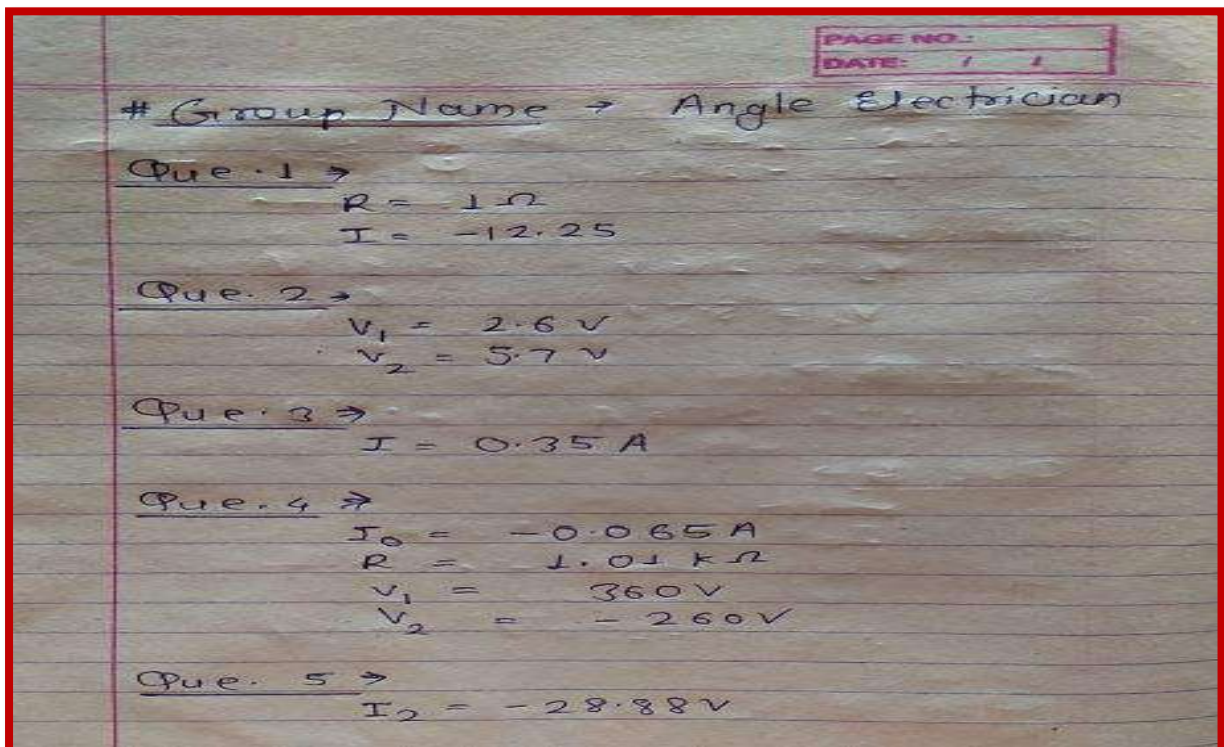 PAGE NO.:
DATE: / /
# Group Name → Angle Electrician
Que. 1 →
R = 1 Ω
I = -12.25
Que. 2 →
V1 = 2.6 V
V2 = 5.7 V
Que. 3 →
I = 0.35 A
Que. 4 →
I0 = -0.065 A
R = 1.01 k Ω
V1 = 360 V
V2 = - 260 V
Que. 5 →
I2 = -28.88 V